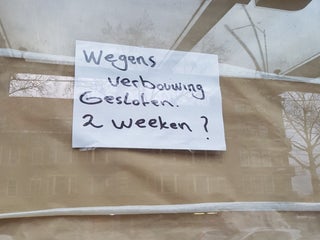 Wegens
verbouwing
Gesloten.
2 weeken ?